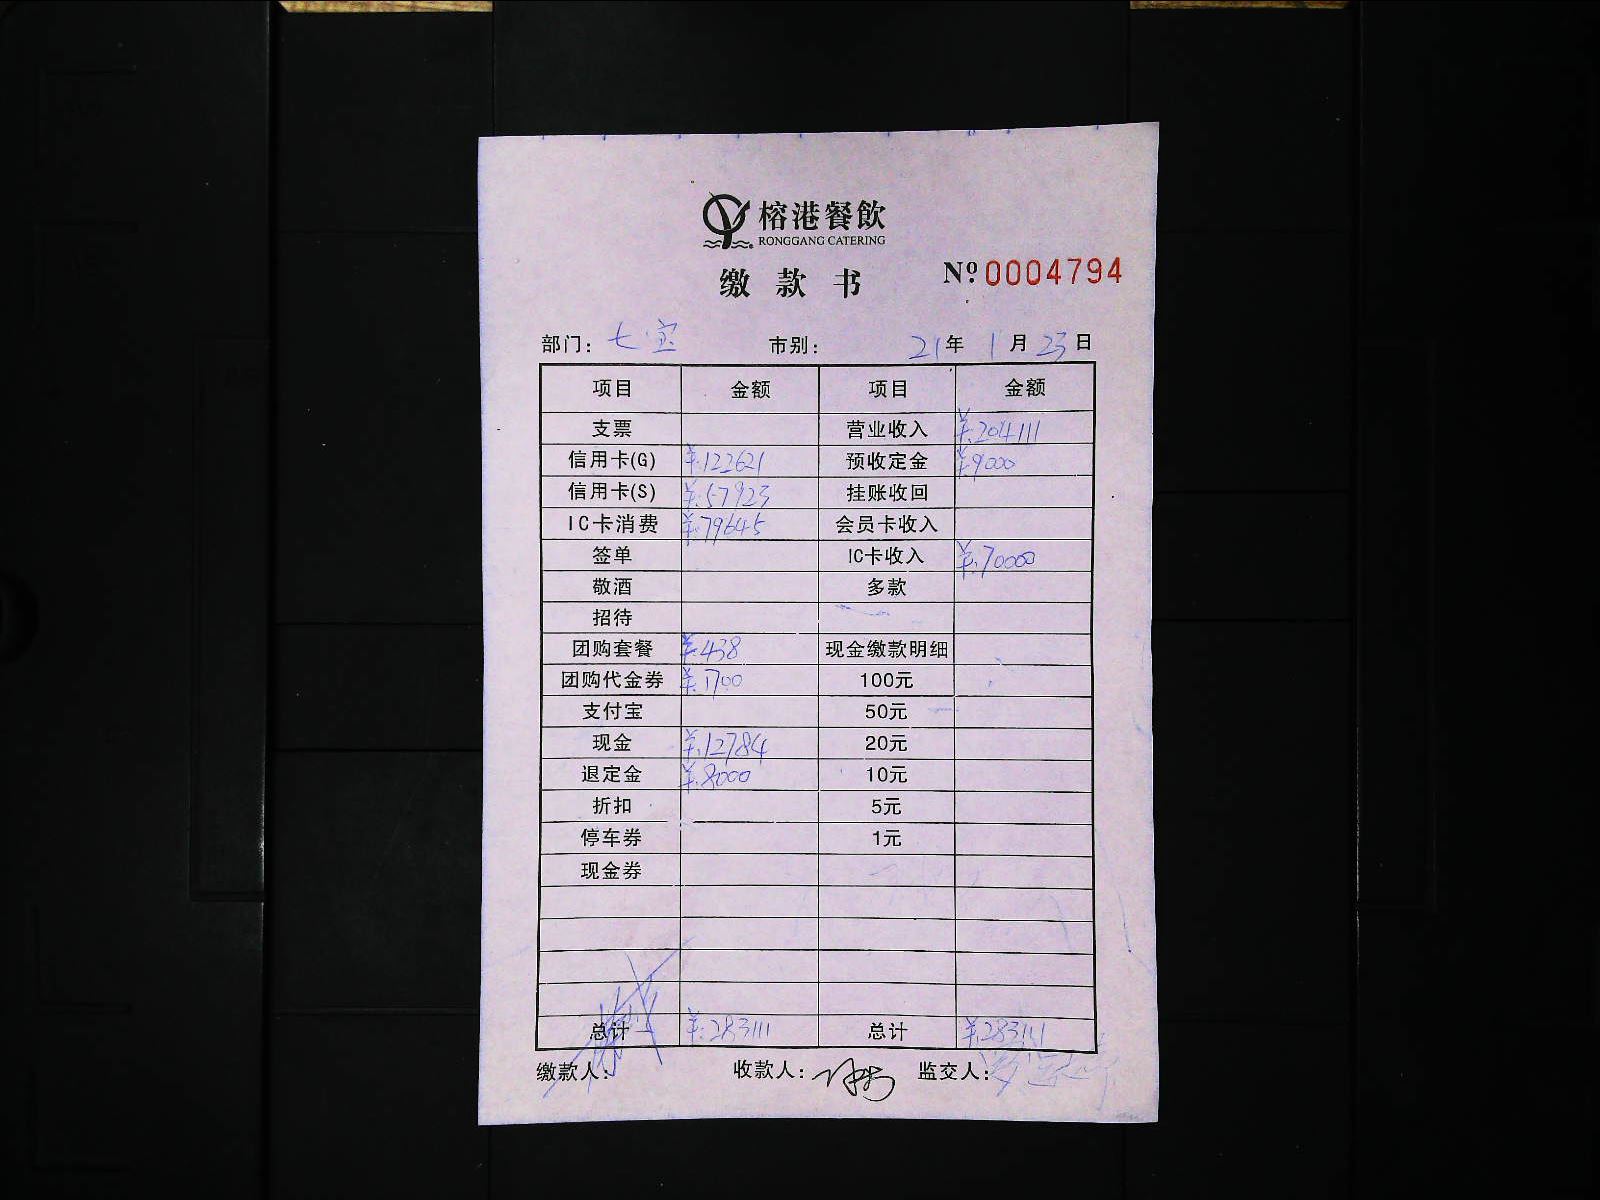 榕港餐飲
RONGGANG CATERING
缴款书 Nº 0004794
部门: 七宝 市别: 21年 1月 23日
项目 金额 项目 金额
支票 营业收入 ¥:204111
信用卡(G) ¥:122621 预收定金 ¥9000
信用卡(S) ¥:57923 挂账收回
IC卡消费 ¥:79645 会员卡收入
签单 IC卡收入 ¥:70000
敬酒 多款
招待
团购套餐 ¥:438 现金缴款明细
团购代金券 ¥:1700 100元
支付宝 50元
现金 ¥:12784 20元
退定金 ¥:8000 10元
折扣 5元
停车券 1元
现金券
总计 ¥:283111 总计 ¥:283111
缴款人: 收款人: 监交人: